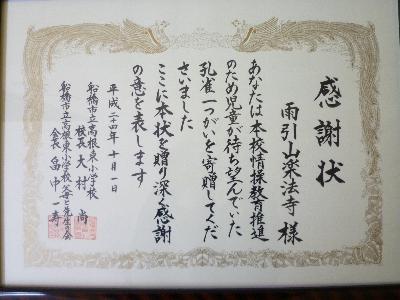 感謝状
雨引山楽法寺様
あなたは本校情操教育推進
のため児童が待ち望んでいた
孔雀一つがいを寄贈してくだ
さいました
ここに本状を贈り深く感謝
の意を表します
平成二十四年十月一日
船橋市立高根東小学校
校長 大村 尚
船橋市立高根東小学校父母と先生の会
会長 畠中一寿